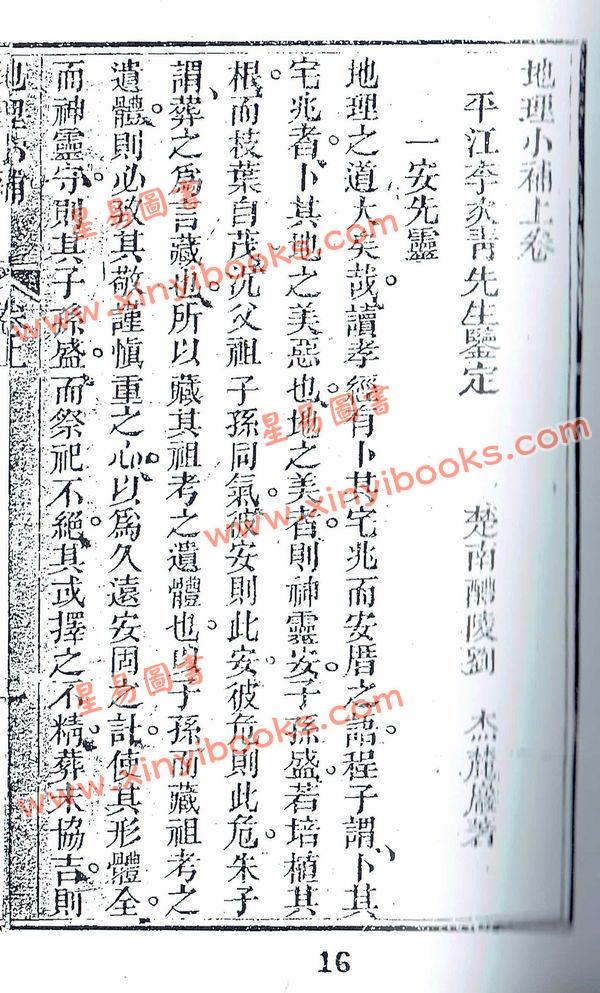 地理小補上卷
平江李次青先生鑒定　楚南醴陵劉　杰蔍巖著
一安先靈
地理之道大矣哉讀孝經有卜其宅兆而安厝之語程子謂卜其
宅兆者卜其地之美惡也地之美者則神靈安子孫盛若培植其
根而枝葉自茂况父祖子孫同氣彼安則此安彼危則此危朱子
謂葬之爲言藏也所以藏其祖考之遺體也以子孫而藏祖考之
遺體則必致其敬謹慎重之心以爲久遠安固之計使其形體全
而神靈守則其子孫盛而祭祀不絕其或擇之不精葬未協吉則
地理小補 卷上
16
星易圖書
www.xinyibooks.com
星易圖書
www.xinyibooks.com
星易圖書
www.xinyibooks.com